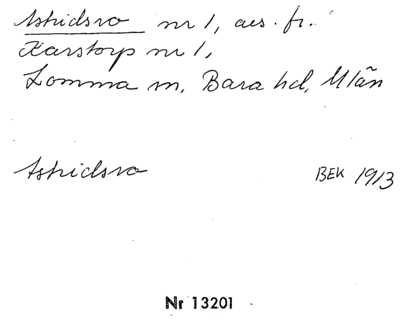 Astridsro nr 1, avs. fr.
Karstorp nr 1,
Lomma sn, Bara hd, M län
Astridsro BEK 1913
Nr 13201